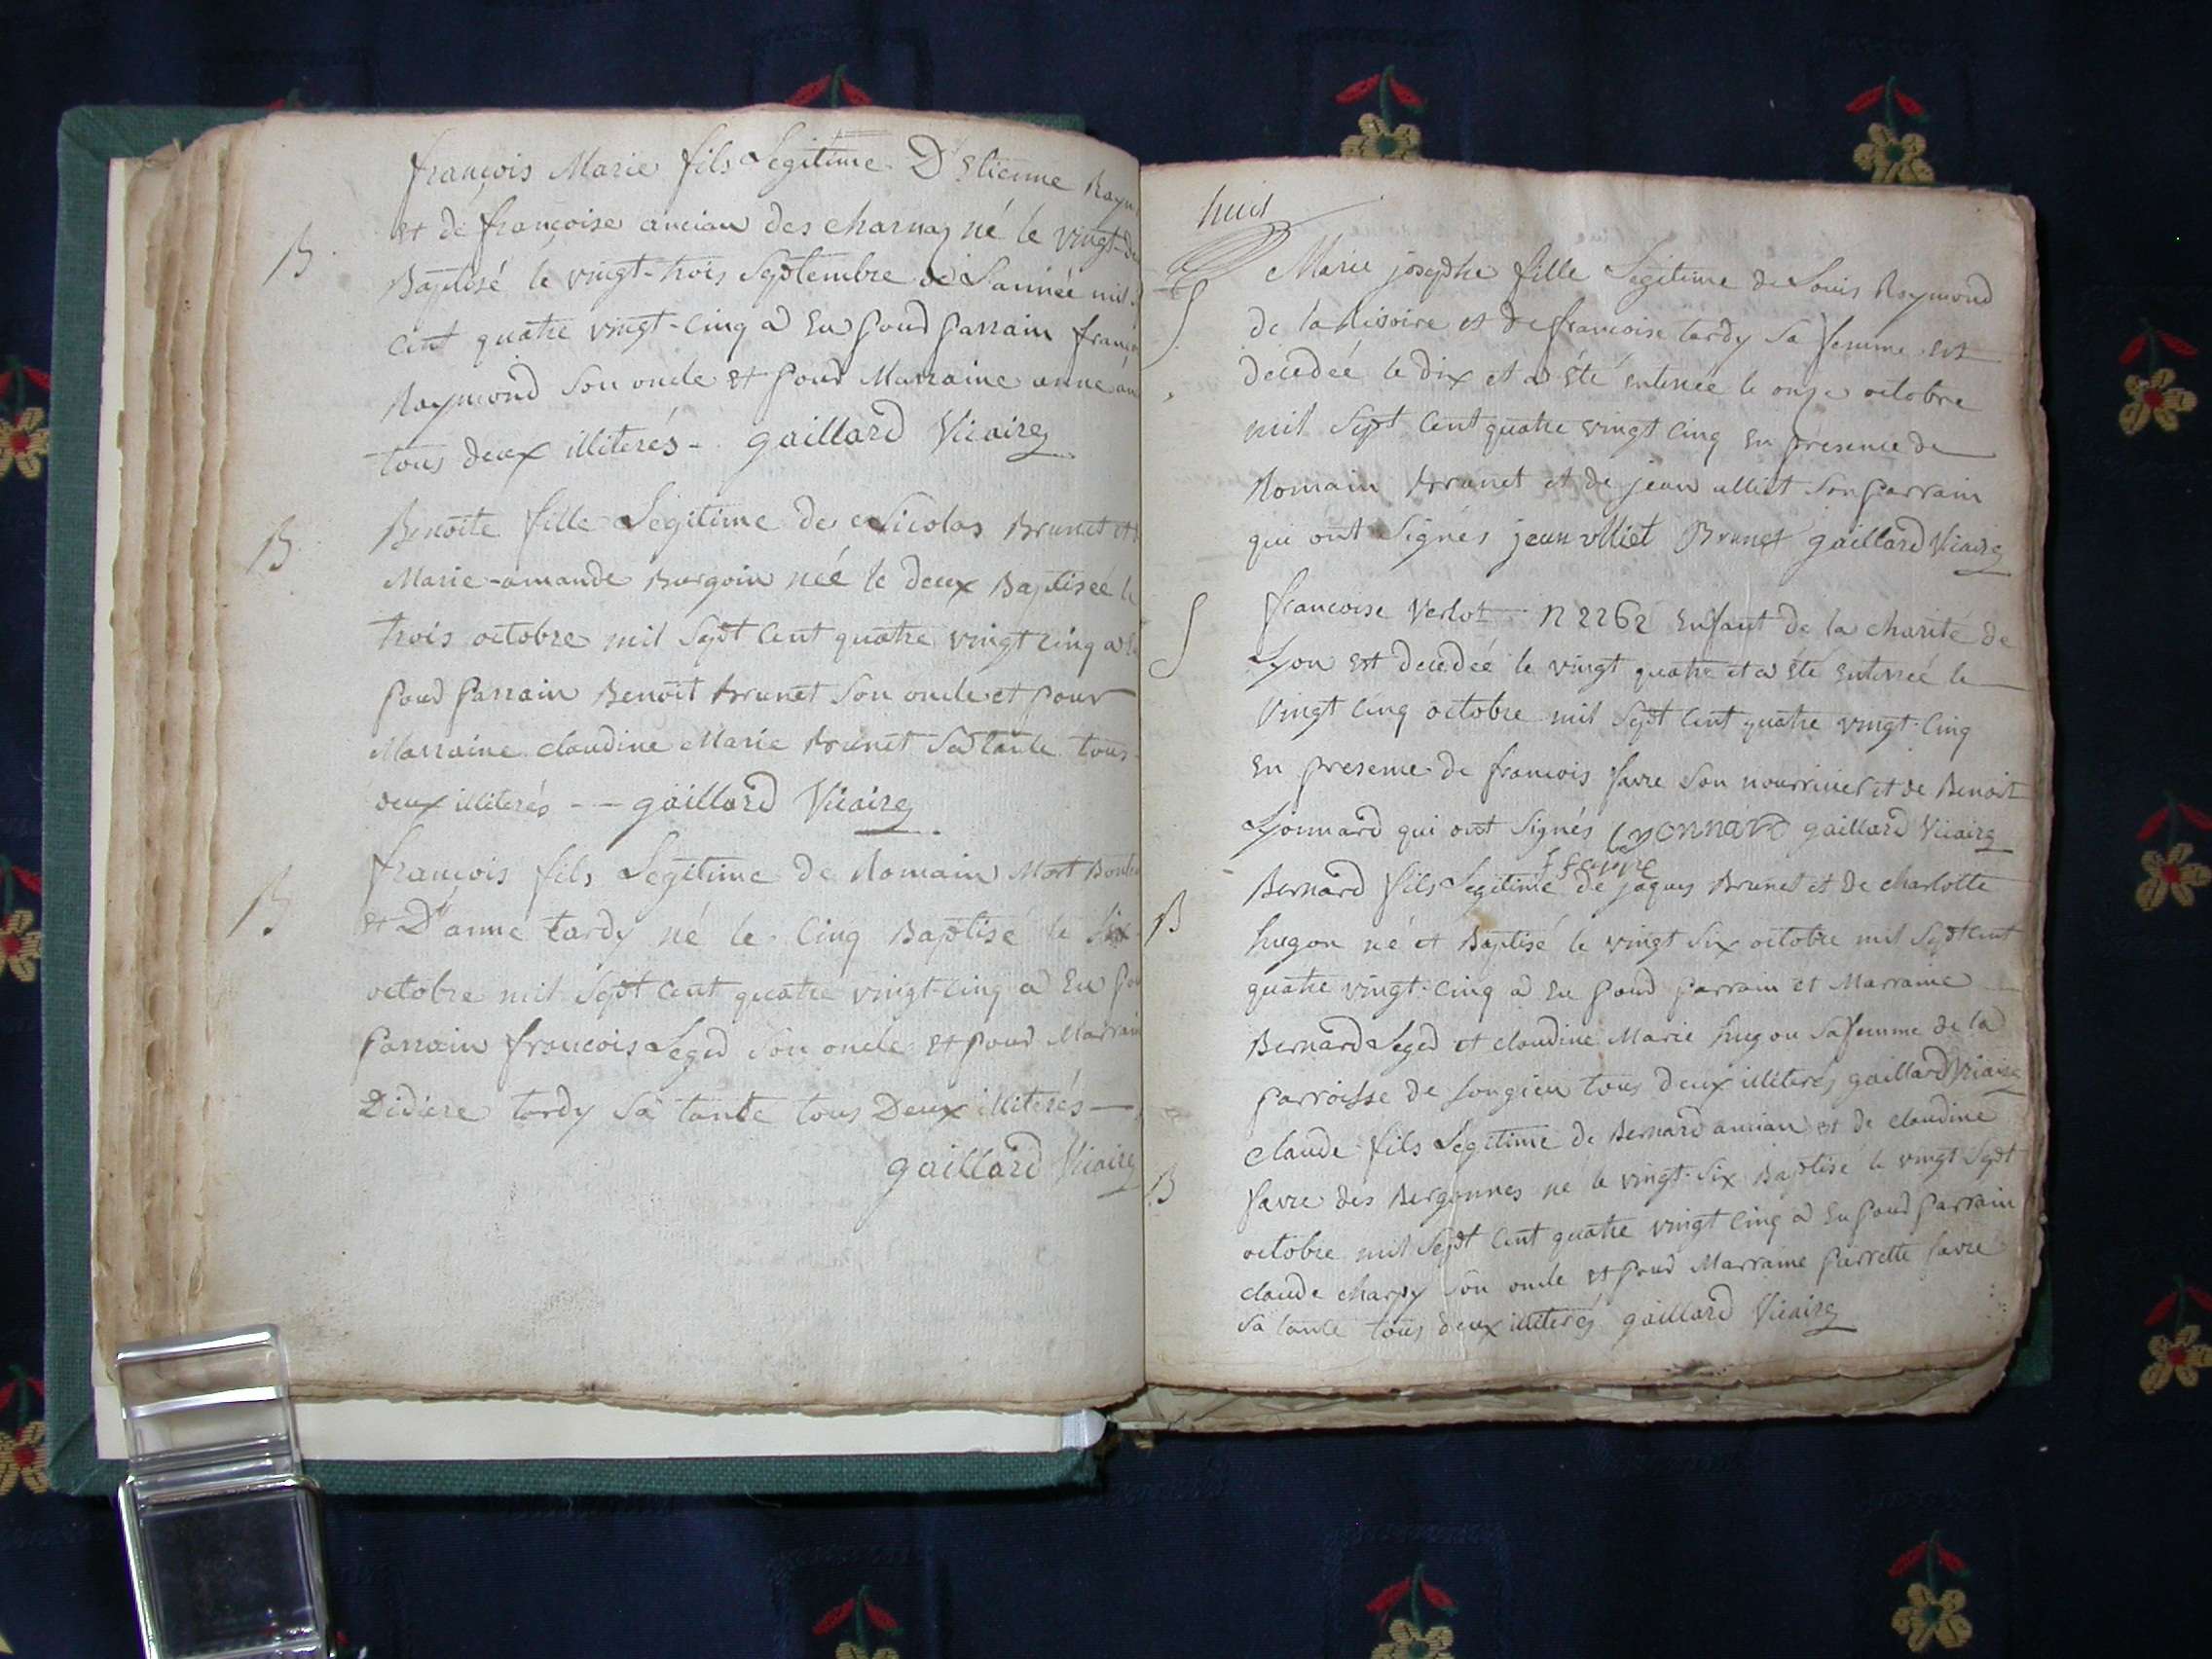 françois Marie fils Legitime D'Etienne Raym
B et de françoise ancian des charnay né le vingt-de
Baptisé le vingt-trois Septembre de L'année mil
cent quatre vingt-cinq a Eu pour parrain franço
Raymond Son oncle et pour Marraine anne an
tous deux illiterés - gaillard Vicaire
B Benoite fille Legitime de Nicolas Brunet et
Marie-amande Burgoin née le deux Baptisée le
trois octobre mil Sept Cent quatre vingt cinq a E
pour parrain Benoit brunet Son oncle et pour
Marraine claudine Marie brunet Sa tante tous
deux illiterés -- gaillard Vicaire
françois fils Legitime de Romain Mort
B et D'anne tardy né le cinq Baptisé le Six
octobre mil Sept Cent quatre vingt-cinq a Eu po
parrain françois Leged Son oncle et pour Marrain
Didiere tardy Sa tante tous Deux illiterés
gaillard Vicaire
huit
Marie josephe fille Legitime de Louis Raymond
S de la et de francoise tardy Sa femme est
decedée le dix et a été enterrée le onze octobre
mil Sept Cent quatre vingt cinq en presence de
Romain brunet et de jean ulliet Son parrain
qui ont Signés jean ulliet Brunet gaillard Vicaire
francoise Verlot n 2262 Enfant de la charité de
S Lyon est decedée le vingt quatre et a été enterrée le
vingt cinq octobre mil Sept Cent quatre vingt-cinq
en presence de francois favre Son nourricier et de Benoit
Lyonnard qui ont Signés Lyonnard gaillard Vicaire
f faivre
Bernard fils Legitime de jaques Brunet et de charlotte
B hugon né et Baptisé le vingt Six octobre mil Sept cent
quatre vingt-cinq a Eu pour parrain et Marraine
Bernard Leged et claudine Marie hugon Sa femme de la
parroisse de Songieu tous deux illiterés gaillard Vicaire
claude fils Legitime de Bernard ancian et de claudine
B favre des Bergonnes ne le vingt-Six Baptisé le vingt Sept
octobre mil Sept Cent quatre vingt cinq a Eu pour parrain
claude charpy Son oncle et pour Marraine pierrette favre
Sa tante tous deux illiterés gaillard Vicaire